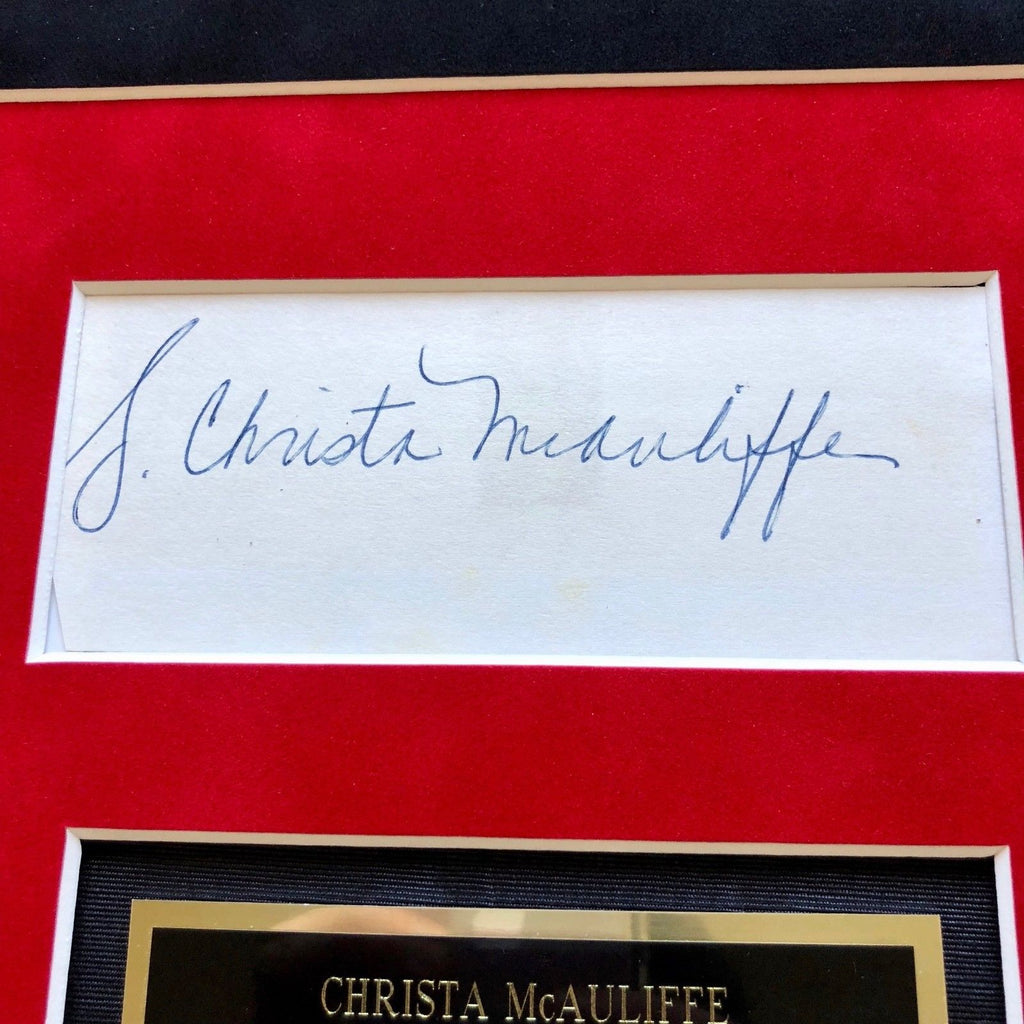 S. Christa McAuliffe
CHRISTA McAULIFFE